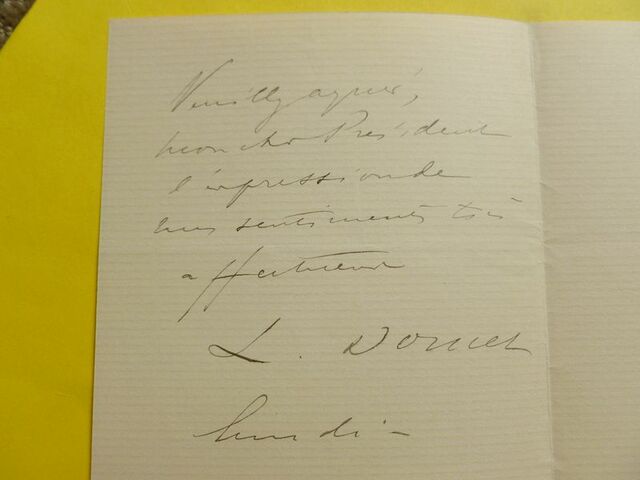 Veuillez agréer,
mon cher Président
l'expression de
mes sentiments très
affectueux
L.
lundi -